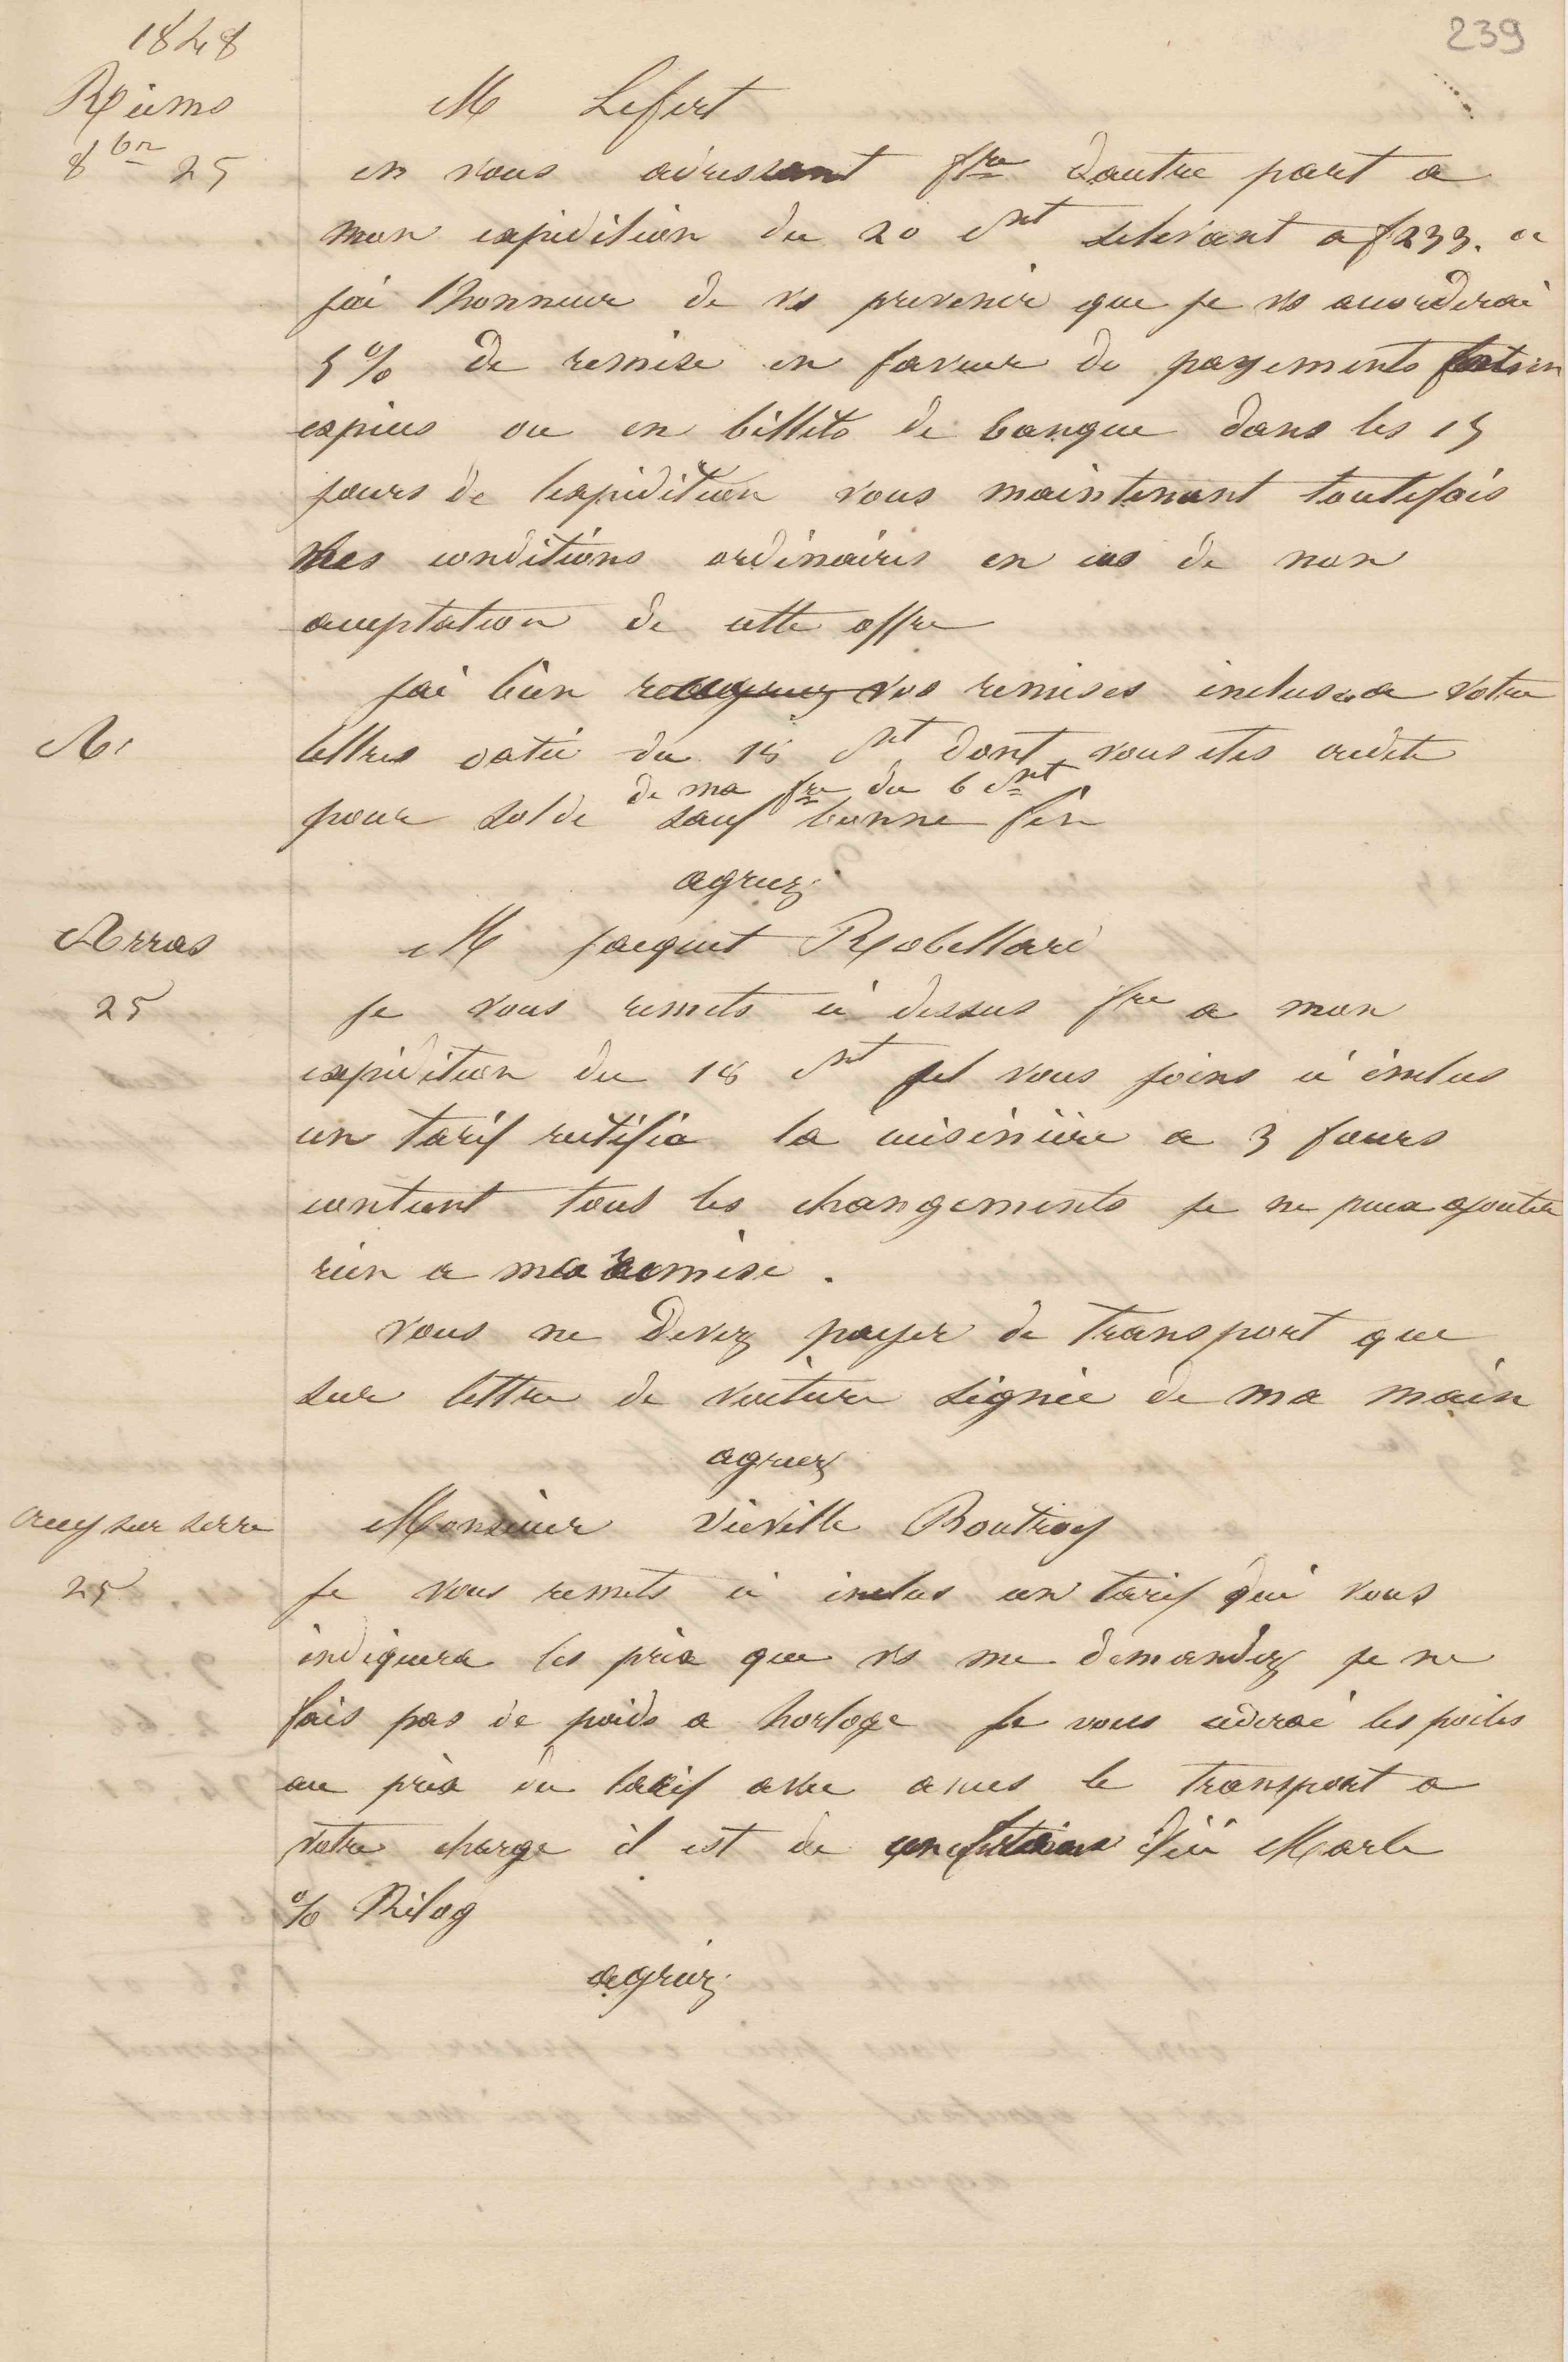 239
1848
Reims
8bre 25
M Lefert
en vous adressant fre dautre part a
mon expedition du 20 ct selevant a f 233.
jai lhonneur de vs prevenir que je vs accorderai
5% de remise en faveur de payements fait en
espices ou en billets de banque dans les 15
jours de lexpedition vous maintenant toutefois
mes conditions ordinaires en cas de non
acceptation de cette offre
jai bien vos remises incluses a votre
lettres datée du 18 ct dont vous etes credite
de ma fre du 6 ct
pour solde sauf bonne fin
agreez
Arras
25
M Jacquet Robellard
Je vous remets ci dessus fre a mon
expedition du 18 ct je vous joins ci inclus
un tarif rectifié la cuisiniére a 3 fours
contient tous les changements je ne puis ajouter
rien a ma remise.
vous ne devez payer de transport que
sur lettre de voiture signée de ma main
agreez
Crecy sur serre
25
Monsieur Viéville Boutroy
Je vous remets ci inclus un tarif qui vous
indiquera les prix que vs me demandez je ne
fais pas de poids a horloge Je vous cederai les poiles
au prix du tarif avec le transport a
votre charge il est de d'ici Marle
%
agreez